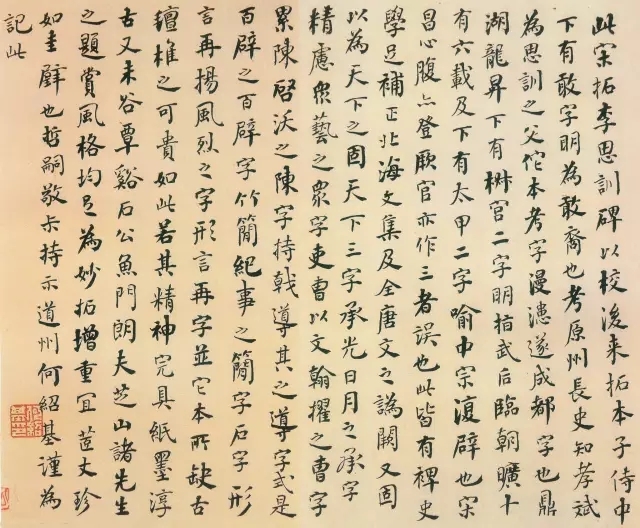 此宋拓李思訓碑以校後来拓本子侍中
下有敢字明為敢裔也考原州長史知孝斌
為思訓之父佗本考字漫漶遂成都字也鼎
湖龍昇下有樹宮二字明指武后臨朝曠十
有六載及下有太甲二字喻中宗復辟也宋
昌心腹亦登厥官亦作三者誤也此皆有裨史
學足補正北海文集及全唐文之譌闕又固
以為天下之固天下三字承光日月之承字
精慮眾藝之眾字吏曹以文翰擢之曹字
累陳啓沃之陳字持戟導其之導字式是
百辟之百辟字竹簡紀事之簡字石字形
言再揚風烈之字形言再字並它本所缺古
氊椎之可貴如此若其精神完具紙墨淳
古又未谷覃谿石公魚門朗夫芝山諸先生
之題賞風格均足為妙拓增重宜荁丈珍
如圭璧也哲嗣敬持示道州何紹基謹為
記此